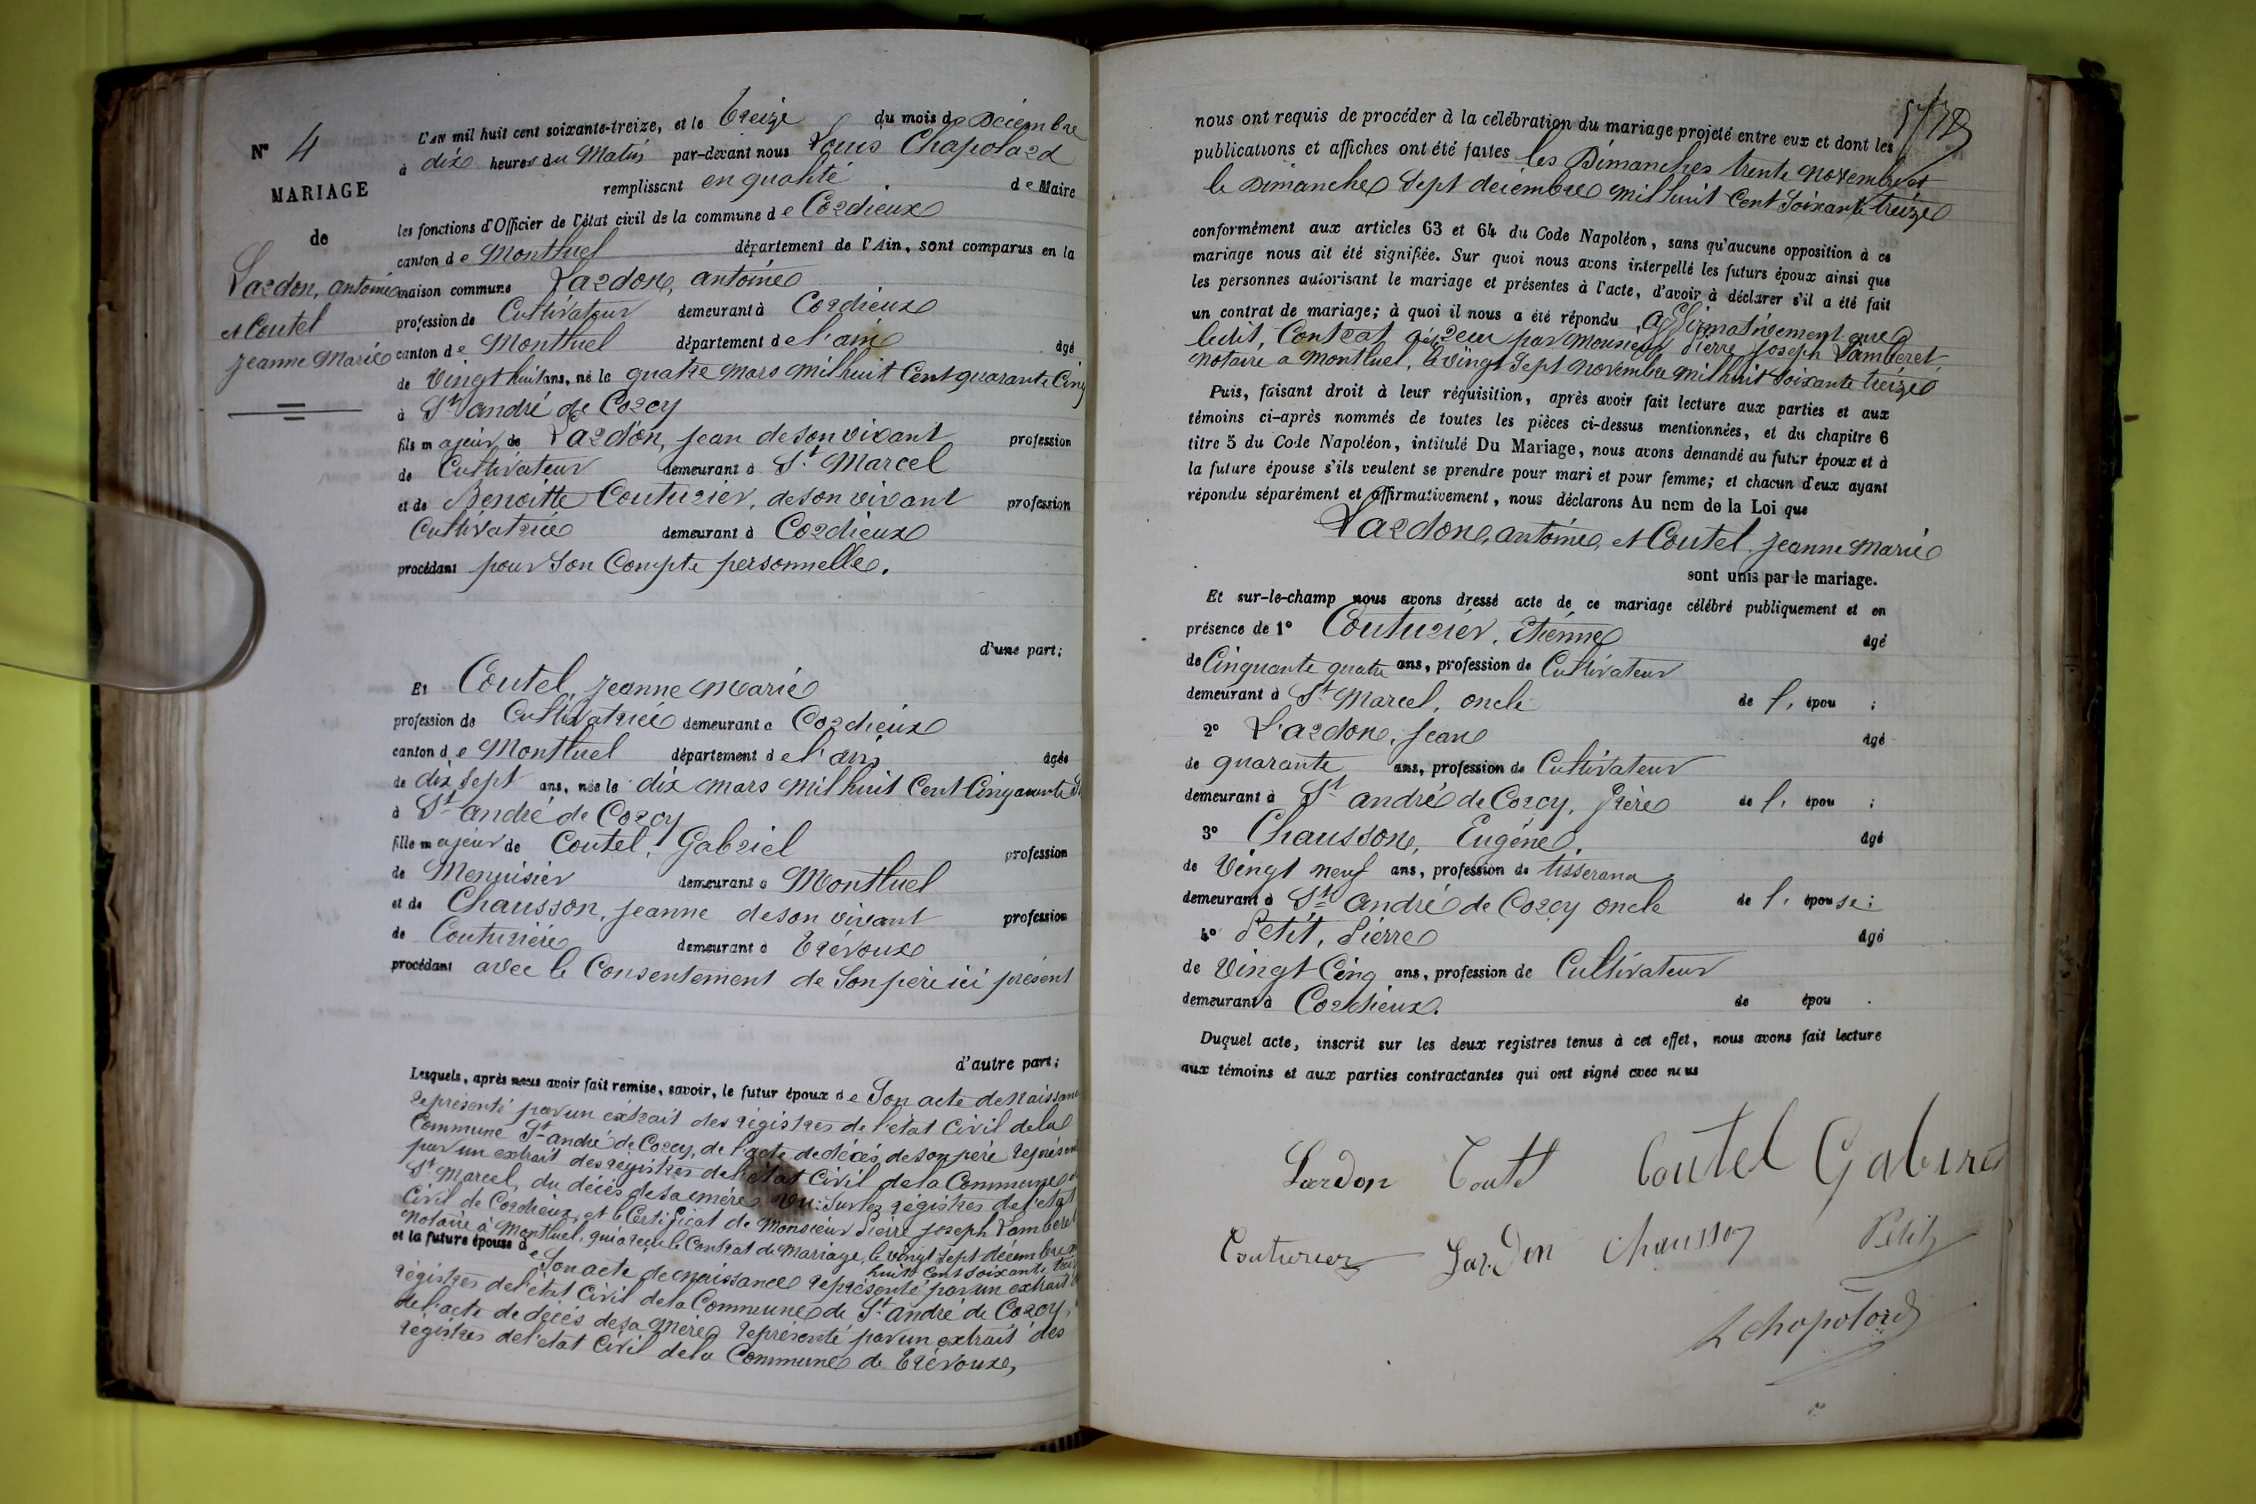 N° 4
MARIAGE
de
Lardon, antoine
et Coutel
jeanne Marie
L'AN mil huit cent soixante-treize, et le treize du mois de Décembre
à dix heures du Matin par-devant nous Louis Chapolard
remplissant en qualité de Maire
les fonctions d'Officier de l'état civil de la commune de Cordieux
canton de Montluel département de l'Ain, sont comparus en la
maison commune Lardon, antoine
profession de Cultivateur demeurant à Cordieux
canton de Montluel département de l'ain âgé
de Vingt huit ans, né le quatre mars mil huit Cent quarante Cinq
à St andré de Corcy
fils majeur de Lardon, jean de son vivant profession
de Cultivateur demeurant à St Marcel
et de Benoitte Couturier, de son vivant profession
Cultivatrice demeurant à Cordieux
procédant pour Son Compte personnelle.
d'une part;
Et Coutel, jeanne Marie
profession de Cultivatrice demeurant à Cordieux
canton de Montluel département de l'ain âgée
de dix sept ans, née le dix mars mil huit Cent Cinquante
à St andré de Corcy
fille majeur de Coutel, Gabriel profession
de Menuisier demeurant à Montluel
et de Chausson, jeanne de son vivant profession
de Couturière demeurant à Trévoux
procédant avec le Consentement de Son père ici présent
d'autre part;
Lesquels, après nous avoir fait remise, savoir, le futur époux de Son acte de Naissance
représenté par un extrait des régistres de l'état Civil de la
Commune St andré de Corcy, de l'acte de décés de son père représenté
par un extrait des régistres de l'état Civil de la Commune
St Marcel, du décés de sa mére Vu Sur les régistres de l'état
Civil de Cordieux, et le Certificat de Monsieur Pierre joseph Lamberet
Notaire à Montluel, qui a reçu le Contrat de Mariage, le vingt Sept décembre
huit Cent soixante treize
et la future épouse de Son acte de naissance représenté par un extrait
régistres de l'état Civil de la Commune de St andré de Corcy,
de l'acte de décés de sa mère représenté par un extrait des
régistres de l'état Civil de la Commune de Trévoux,
nous ont requis de procéder à la célébration du mariage projeté entre eux et dont les
publications et affiches ont été faites les Dimanches trente novembre et
le Dimanche Sept décembre mil huit Cent Soixante treize
conformément aux articles 63 et 64 du Code Napoléon, sans qu'aucune opposition à ce
mariage nous ait été signifiée. Sur quoi nous avons interpellé les futurs époux ainsi que
les personnes autorisant le mariage et présentes à l'acte, d'avoir à déclarer s'il a été fait
un contrat de mariage; à quoi il nous a été répondu affirmativement que
ledit, Contrat reçu par monsieur Pierre joseph Lamberet,
notaire a Montluel, le vingt Sept novembre mil huit Soixante treize
Puis, faisant droit à leur réquisition, après avoir fait lecture aux parties et aux
témoins ci-après nommés de toutes les pièces ci-dessus mentionnées, et du chapitre 6
titre 5 du Code Napoléon, intitulé Du Mariage, nous avons demandé au futur époux et à
la future épouse s'ils veulent se prendre pour mari et pour femme; et chacun d'eux ayant
répondu séparément et affirmativement, nous déclarons Au nom de la Loi que
Lardon, antoine, et Coutel, jeanne Marie
sont unis par le mariage.
Et sur-le-champ nous avons dressé acte de ce mariage célébré publiquement et en
présence de 1° Couturier, Etienne âgé
de Cinquante quatre ans, profession de Cultivateur
demeurant à St Marcel, oncle de l' épou ;
2° Lardon, jean âgé
de quarante ans, profession de Cultivateur
demeurant à St andré de Corcy, frère de l' épou ;
3° Chausson, Eugéne, âgé
de Vingt neuf ans, profession de tisserand
demeurant à St andré de Corcy oncle de l' épouse;
4° Petit, Pierre âgé
de Vingt Cinq ans, profession de Cultivateur
demeurant à Cordieux. de épou .
Duquel acte, inscrit sur les deux registres tenus à cet effet, nous avons fait lecture
aux témoins et aux parties contractantes qui ont signé avec nous
Lardon Coutel Coutel Gabirel
Couturier Lardon Chausson Petit
L chapolard